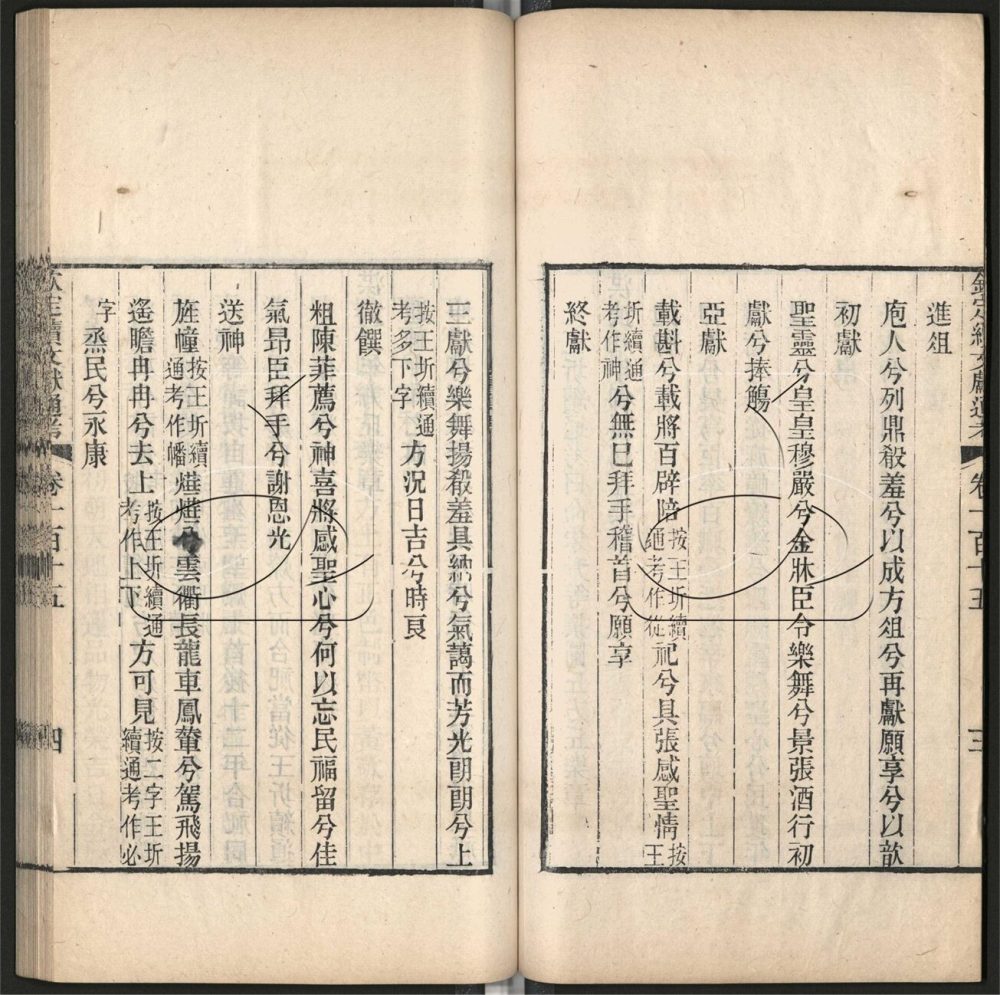 欽定續文獻通考 卷一百十五 三
進俎
庖人兮列鼎殽羞兮以成方俎兮再獻願享兮以歆
初獻
聖靈兮皇皇穆嚴兮金牀臣令樂舞兮景張酒行初
獻兮捧觴
亞獻
載斟兮載將百辟陪按王圻續通考作從祀兮具張感聖情按王
圻續通考作神兮無已拜手稽首兮願享
終獻
三獻兮樂舞揚殽羞具納兮氣藹而芳光朗朗兮上
按王圻續通考多下字方況日吉兮時良
徹饌
粗陳菲薦兮神喜將感聖心兮何以忘民福留兮佳
氣昂臣拜手兮謝恩光
送神
旌幢按王圻續通考作幡燁燁兮雲衢長龍車鳳輦兮駕飛揚
遙瞻冉冉兮去上按王圻續通考作上下方可見按二字王圻續通考作必
字烝民兮永康
欽定續文獻通考 卷一百十五 四